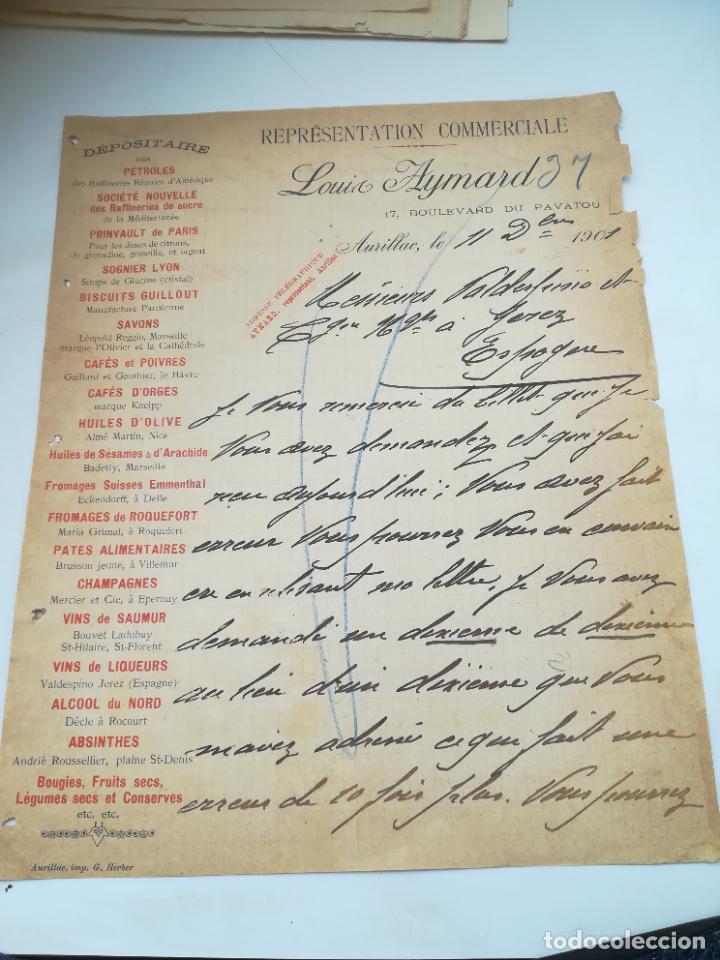 REPRÉSENTATION COMMERCIALE
Louis Aymard 37
17, BOULEVARD DU PAVATOU
Aurillac, le 11 Dbre 1901
ADRESSE TÉLÉGRAPHIQUE
AYMARD, représentant, Aurillac
DÉPOSITAIRE
DES
PÉTROLES
des Raffineries Réunies d'Amérique
SOCIÉTÉ NOUVELLE
des Raffineries de sucre
de la Méditerranée
PRINVAULT de PARIS
Pour les doses de citrons,
de grenadine, groseille, et orgeat
SOGNIER LYON
Sirops de Glucose (cristal)
BISCUITS GUILLOUT
Manufacture Parisienne
SAVONS
Léopold Reggio, Marseille
marque l'Olivier et la Cathédrale
CAFÉS et POIVRES
Gaillard et Gouthiez, le Hâvre
CAFÉS D'ORGES
marque Kneipp
HUILES D'OLIVE
Aimé Martin, Nice
Huiles de Sésames & d'Arachide
Badetty, Marseille
Fromages Suisses Emmenthal
Eckendorff, à Delle
FROMAGES de ROQUEFORT
Maria Grimal, à Roquefort
PATES ALIMENTAIRES
Brusson jeune, à Villemur
CHAMPAGNES
Mercier et Cie, à Epernay
VINS de SAUMUR
Bouvet Ladubay
St-Hilaire, St-Florent
VINS de LIQUEURS
Valdespino Jerez (Espagne)
ALCOOL du NORD
Dècle à Rocourt
ABSINTHES
Andrié Roussellier, plaine St-Denis
Bougies, Fruits secs,
Légumes secs et Conserves
etc. etc.
Aurillac, imp. G. Herber
Messieurs Valdespino et
à Jerez
Espagne
Je Vous remercie du billet que je
Vous avez demandez et que j'ai
reçu aujourd'hui; Vous avez fait
erreur Vous pourrez Vous en convain
cre en relisant ma lettre, je Vous avez
demandé un dixieme de dixieme
au lieu d'un dixieme que Vous
m'avez adressé ce qui fait une
erreur de 10 fois plus. Vous pourrez
todocoleccion.net